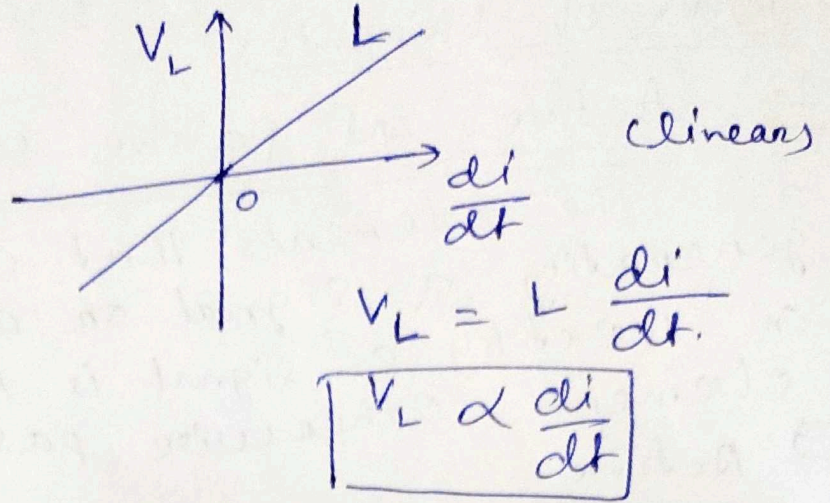 V_L
L
(linear)
0
di/dt
V_L = L di/dt.
V_L ∝ di/dt